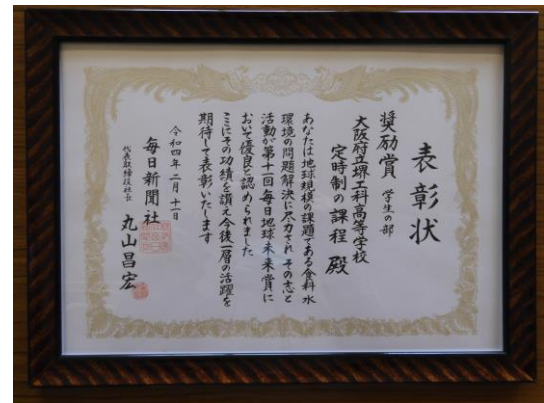 表彰状
奨励賞 学生の部
大阪府立堺工科高等学校
定時制の課程 殿
あなたは地球規模の課題である食料 水
環境の問題解決に尽力され その志と
活動が第十一回毎日地球未来賞に
おいて優良と認められました
ここにその功績を讃え今後一層の活躍を
期待して表彰いたします
令和四年二月十一日
毎日新聞社
代表取締役社長 丸山昌宏